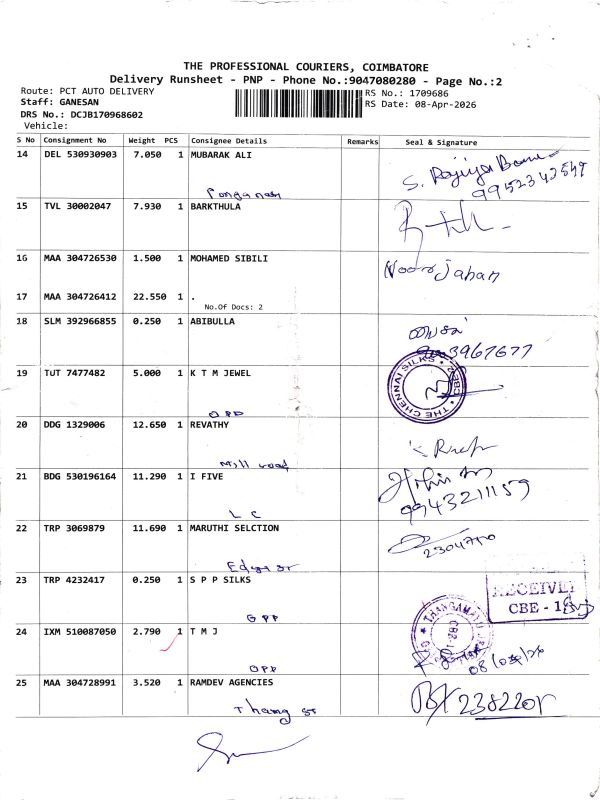 THE PROFESSIONAL COURIERS, COIMBATORE
Delivery Runsheet - PNP - Phone No.:9047080280 - Page No.:2
Route: PCT AUTO DELIVERY
RS No.: 1709686
Staff: GANESAN
RS Date: 08-Apr-2026
DRS No.: DCJB170968602
Vehicle:
S No Consignment No Weight PCS Consignee Details Remarks Seal & Signature
14 DEL 530930903 7.050 1 MUBARAK ALI
S.
9952342549
15 TVL 30002047 7.930 1 BARKTHULA
16 MAA 304726530 1.500 1 MOHAMED SIBILI
Noor jahan
17 MAA 304726412 22.550 1 .
No.Of Docs: 2
18 SLM 392966855 0.250 1 ABIBULLA
3967677
19 TUT 7477482 5.000 1 K T M JEWEL
THE CHENNAI SILKS
OPP
20 DDG 1329006 12.650 1 REVATHY
Mill road
21 BDG 530196164 11.290 1 I FIVE
9943211159
L C
22 TRP 3069879 11.690 1 MARUTHI SELCTION
2304770
23 TRP 4232417 0.250 1 S P P SILKS
RECEIVED
CBE - 1
OPP
24 IXM 510087050 2.790 1 T M J
OPP
08/04/26
25 MAA 304728991 3.520 1 RAMDEV AGENCIES
2382201
Thomg st